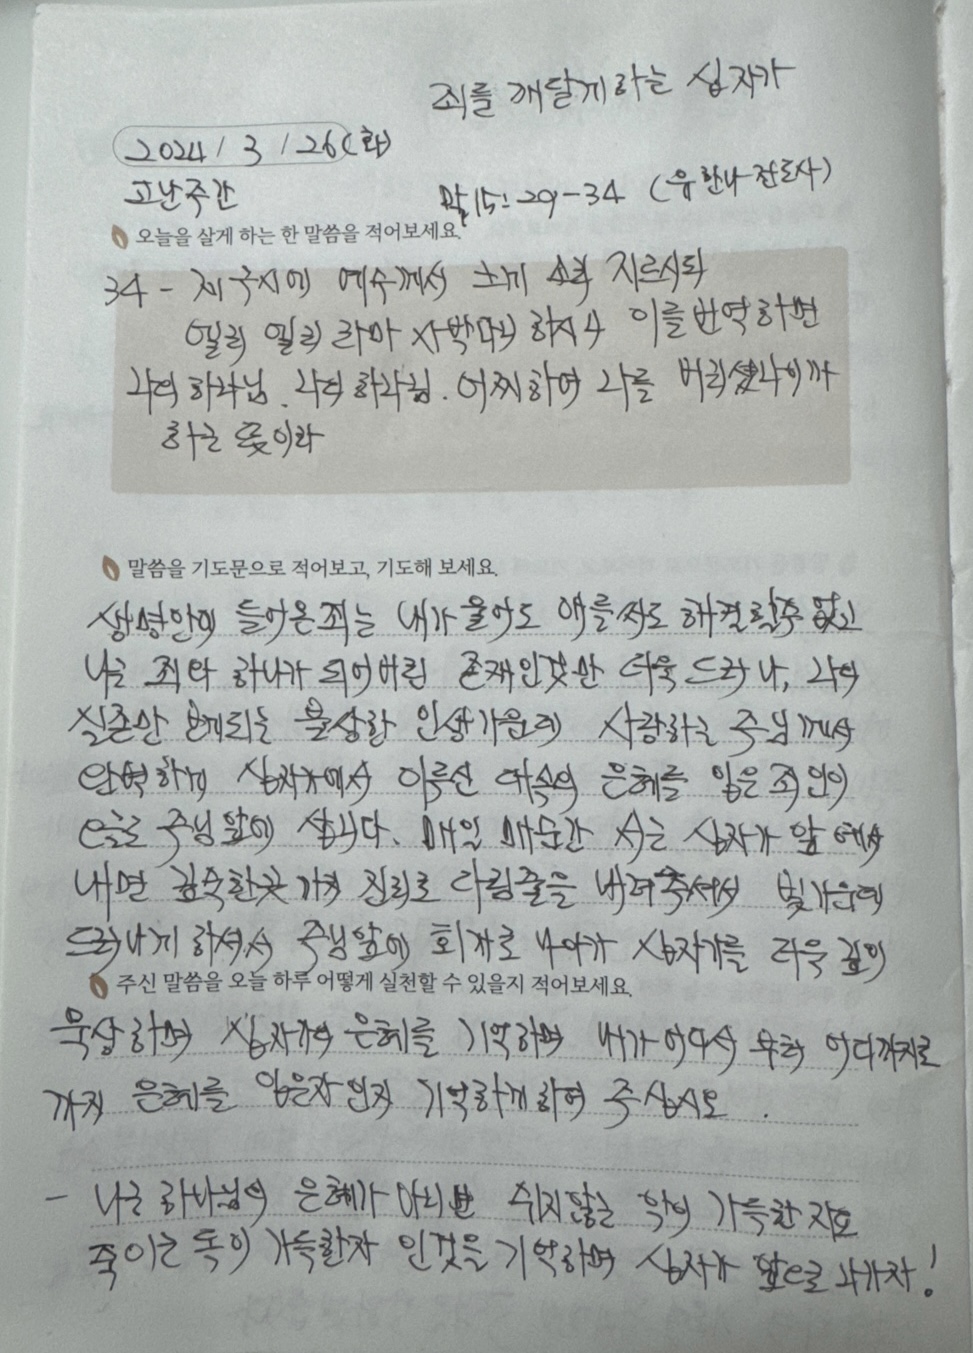 죄를 깨닫게 하는 십자가
2024/3/26(화)
고난주간
막15:29-34 (유한나 전도사)
오늘을 살게 하는 한 말씀을 적어보세요.
34 - 제구시에 예수께서 크게 소리 지르시되
엘리 엘리 라마 사박다니 하시니 이를 번역하면
나의 하나님. 나의 하나님. 어찌하여 나를 버리셨나이까
하는 뜻이라
말씀을 기도문으로 적어보고, 기도해 보세요.
생명안에 들어온 죄는 내가 울어도 애를써도 해결할수 없고
나는 죄와 하나가 되어버린 존재인것만 더욱 드러나, 나의
실존만 보게되는 불상한 인생가운데 사랑하는 주님께서
완벽하게 십자가에서 이루신 대속의 은혜를 입은 죄인이
오늘도 주님앞에 섭니다. 매일 매순간 서는 십자가 앞에서
내면 깊숙한곳 까지 진리로 다림줄을 내려주셔서 빛가운데
드러나게 하셔서 주님앞에 회개로 나아가 십자가를 더욱 깊이
주신 말씀을 오늘 하루 어떻게 실천할 수 있을지 적어보세요.
묵상하며 십자가의 은혜를 기억하며 내가 어디서 부터 어디까지로
까지 은혜를 입은자 인지 기억하게하여 주십시오.
- 나는 하나님의 은혜가 아니면 쉬지않는 악이 가득한 자요
죽이는 독이 가득한자 인것을 기억하며 십자가 앞으로 나가자!